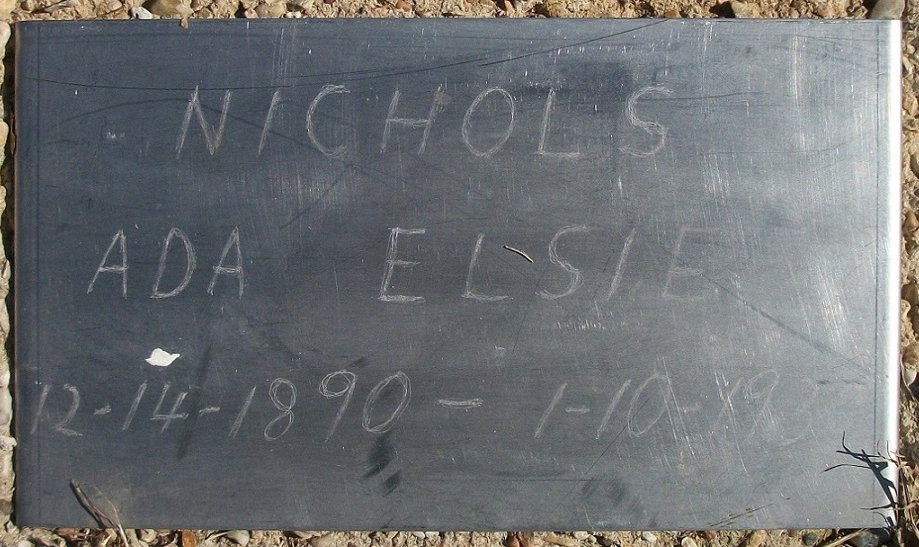 NICHOLS
ADA ELSIE
12-14-1890 - 1-10-